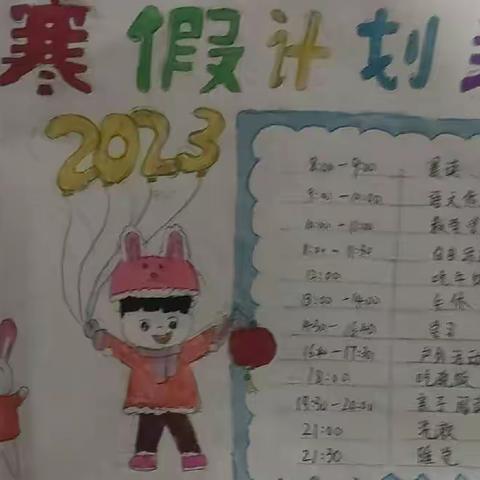 寒假计划
2023
8:00-9:00 晨读
9:00-10:00 语文
10:00-11:00 数学
11:00-11:30 自由活
12:00 吃午
13:00-14:00 午休
14:30-16:40 学习
16:40-17:30 户外活动
18:00 吃晚饭
18:30-20:00 亲子阅
21:00 洗漱
21:30 睡觉